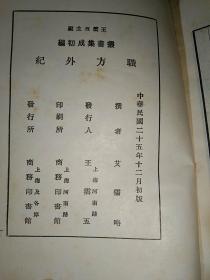 王雲五主編
叢書集成初編
職方外紀
中華民國二十五年十二月初版
撰者 艾儒略
發行人 王雲五
上海河南路
印刷所 商務印書館
上海河南路
發行所 商務印書館
上海及各埠